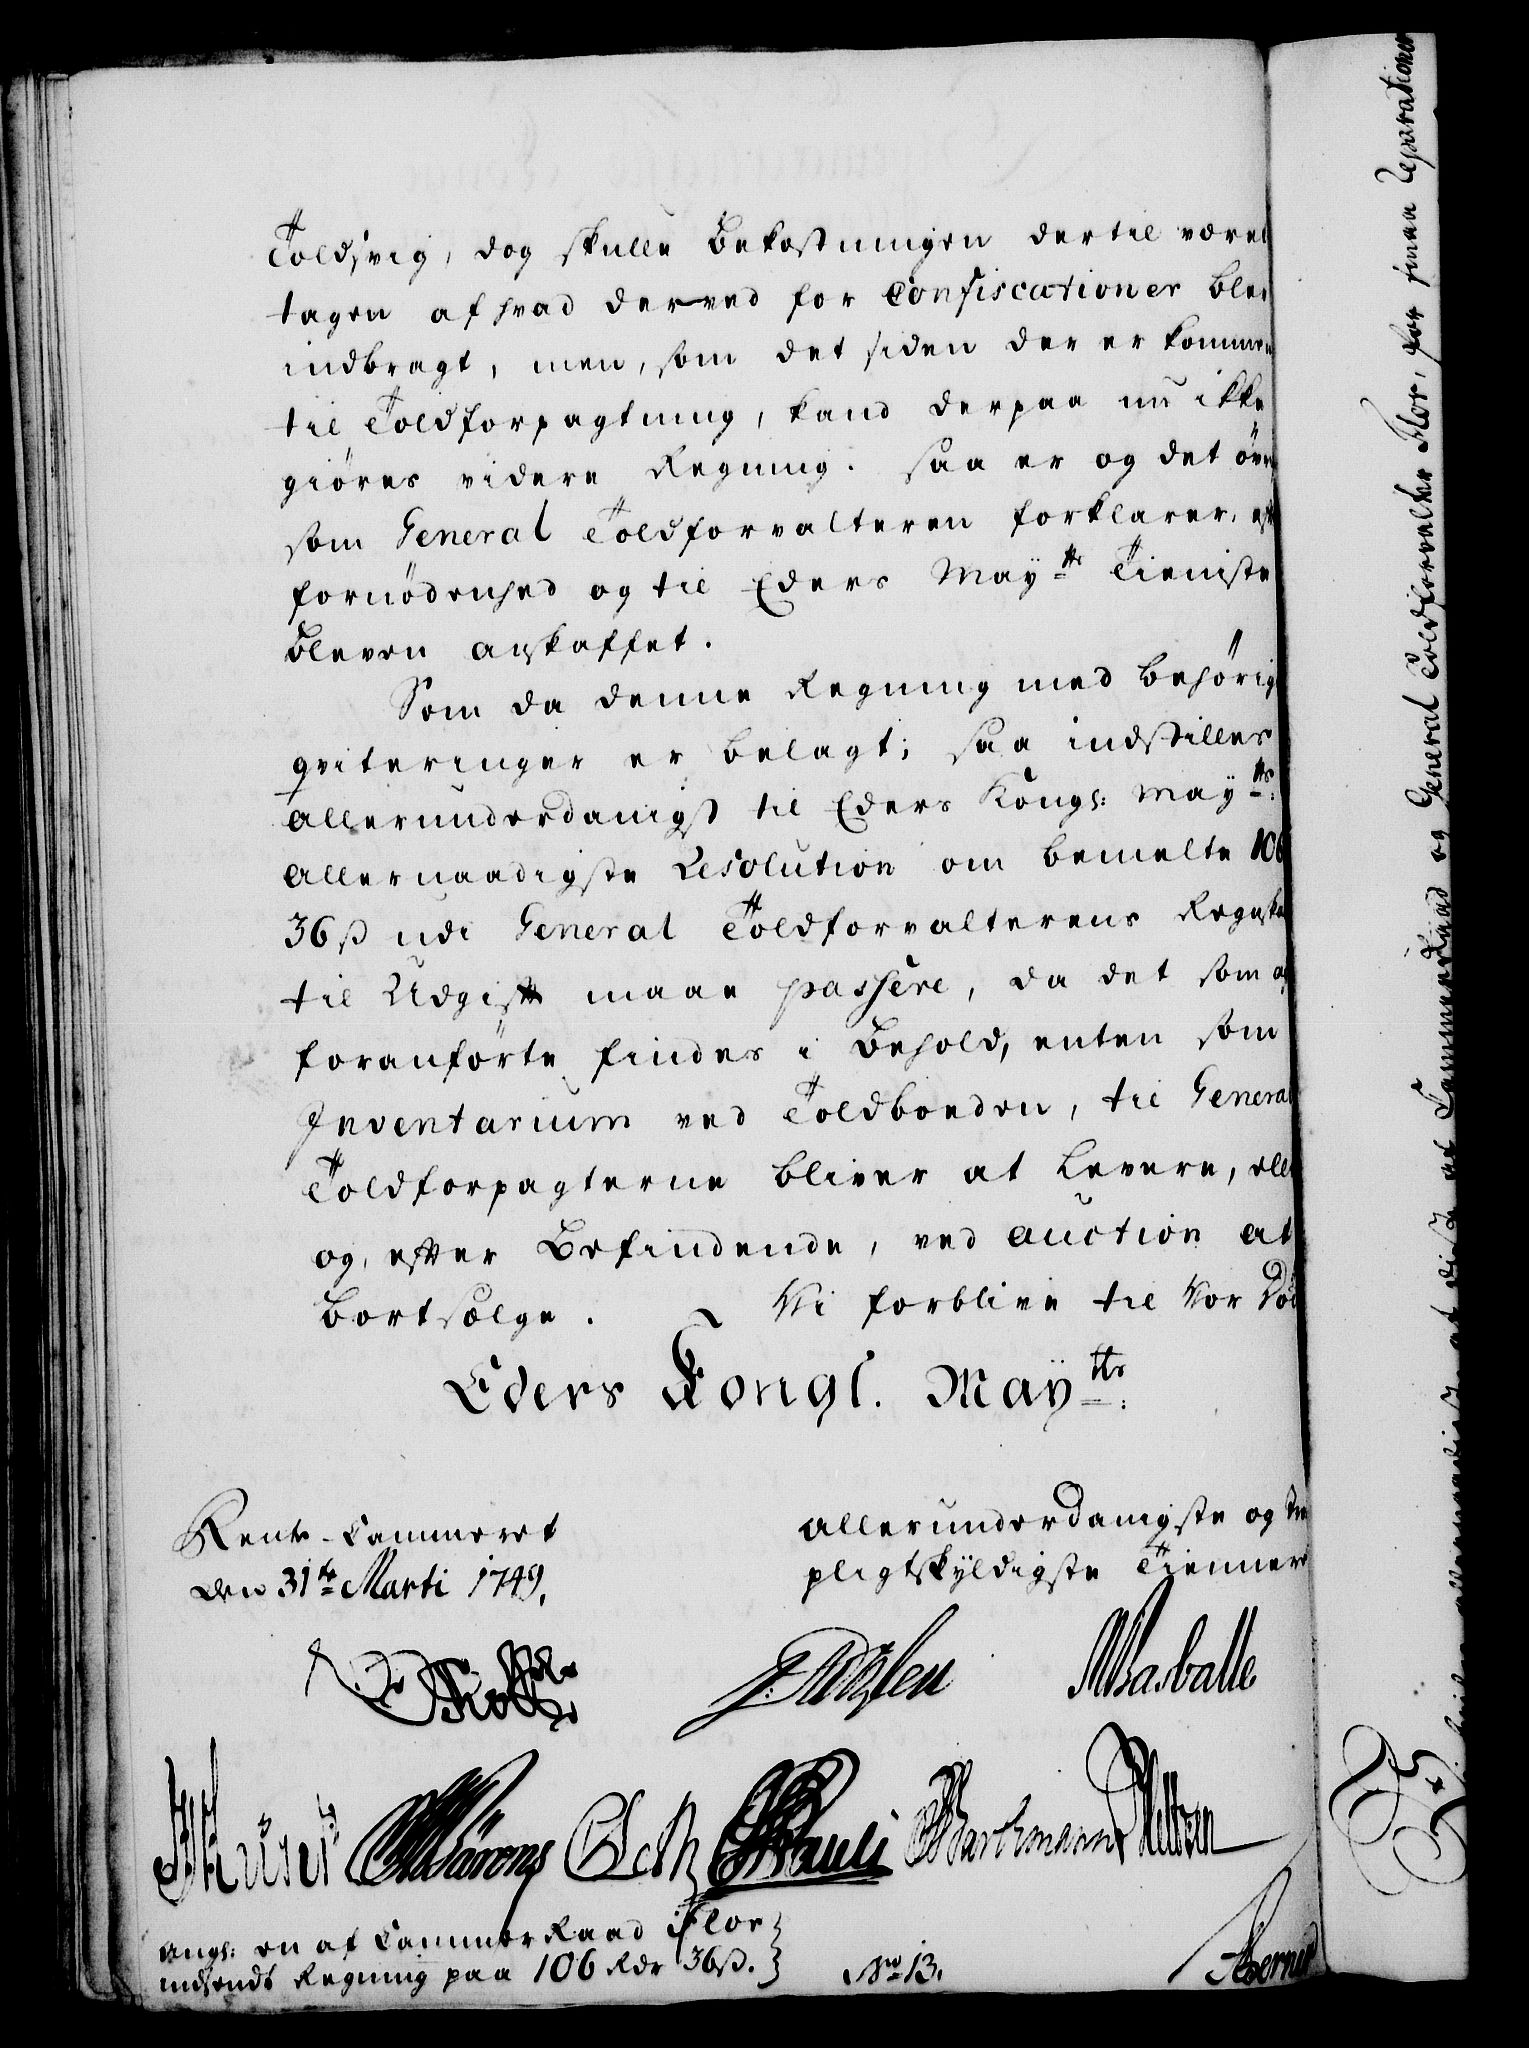 Toldsvig, dog skulle Bekostningen dertil være
tagen af hvad derved for Confiscationer blev
indbragt, men, som det siden der er kommen
til Toldforpagtning, kand derpaa nu ikke
giöres videre Regning. saa er og det övr
som General Toldforvalteren forklarer, eft
fornödenhed og til Eders Maytts Tieniste
bleven anskaffet.
Som da denne Regning med behörig
qviteringer er belagt; saa indstilles
allerunderdanigst til Eders Kongs: Maytts:
allernaadigste Resolution om bemelte 106
36 ß udi General Toldforvalterens Regnska
til Udgift maae passere, da det som af
foranförte findes i Behold, enten som
Inventarium ved Toldboeden, til General
Toldforpagterne bliver at levere, elle
og, efter Befindende, ved auction at
bortsælge. Vi forblive til Vor Död
Eders Kongl. Maytts:
Rente-Cammeret
den 31te Marti 1749.
allerunderdanigste og tro
pligtskyldigste Tiennere
MBasballe
Pauli
angs: en af Cammer Raad Flor
indsendt Regning paa 106 Rdr 36 ß.
No 13.
af Cammer Raad og General Toldforvalter Flor, for smaa Reparationer